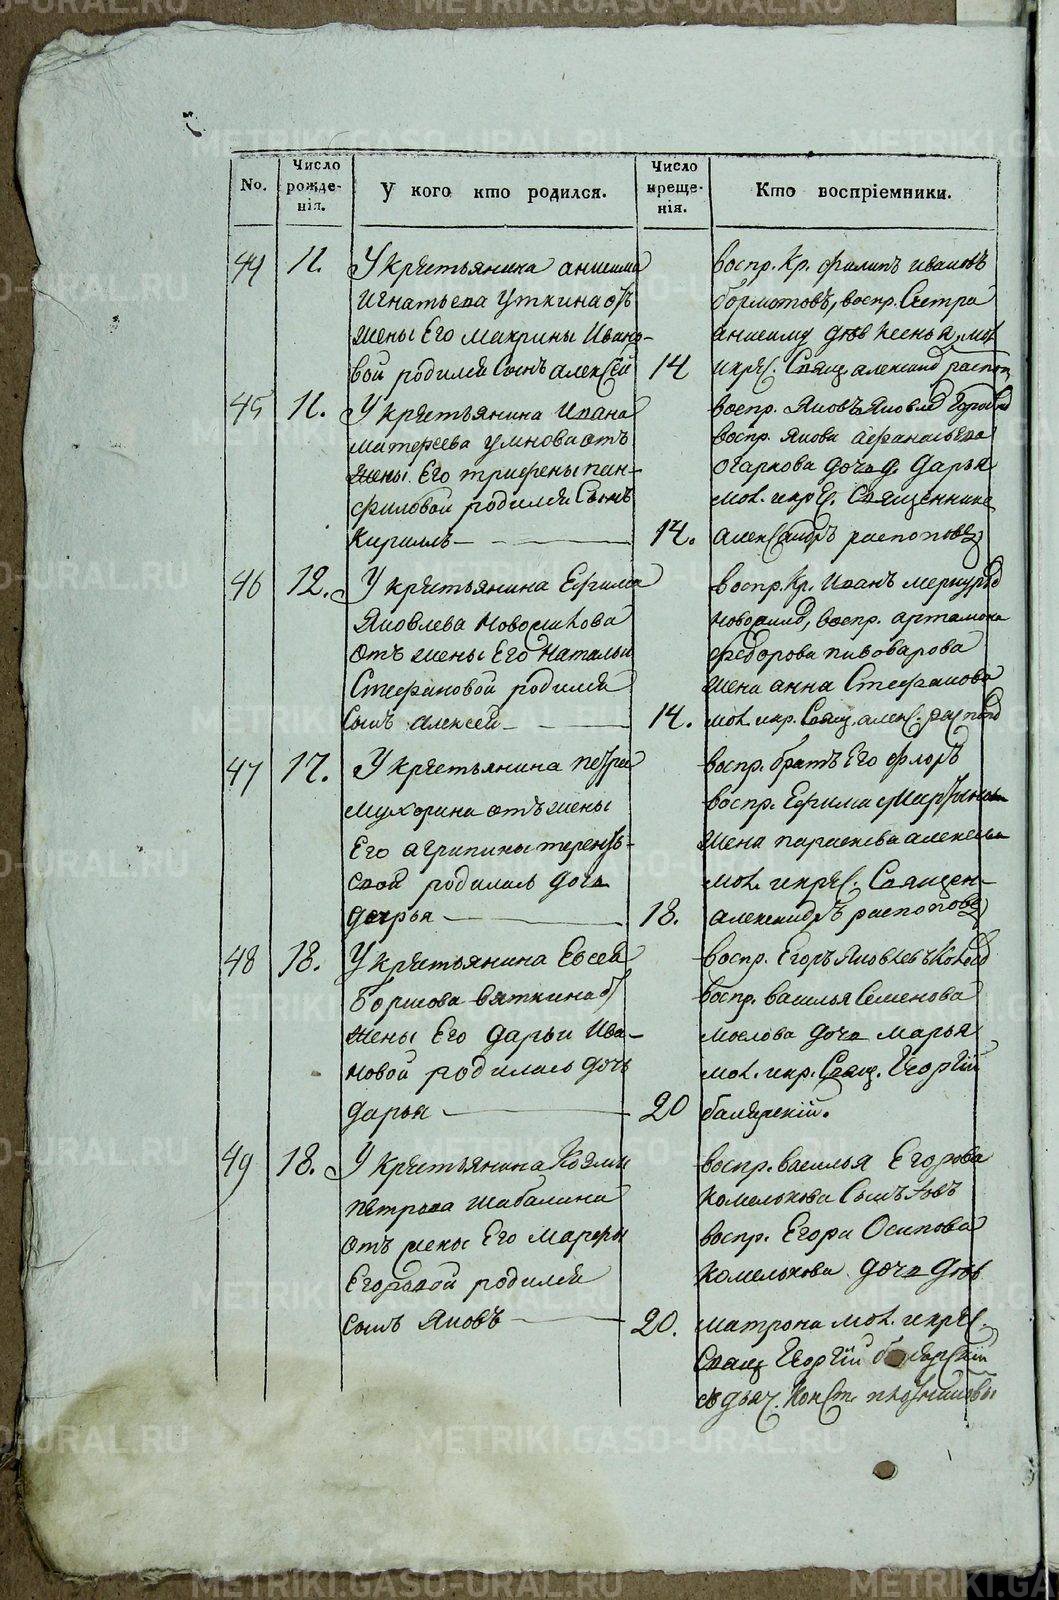 No.
Число рожденія.
У кого кто родился.
Число крещенія.
Кто воспріемники.
44 11. У крестьянина анисима
Игнатьева Уткина отъ
жены Его макрины Ивано-
вой родился Сынъ алексей 14
воспр. кр. филипъ ивановъ
бормотовъ, воспр.
анисима
икре. Свящ. александ распоп
45 11. У крестьянина Ивана
матфеева умнова отъ
жены Его трифены пан-
филовой родился Сынъ
Кириллъ 14.
воспр. Яковъ Яковле
воспр. Якова афанасьева
огаркова дочь д. дарья
мол. икре. Священникъ
александръ распоповъ
46 12. У крестьянина Ефима
Яковлева Новоселова
отъ жены Его Натальи
Стефановой родился
Сынъ алексей 14.
воспр. кр. Иванъ меркурье
воспр. артамона
федорова пивоварова
жена анна Стефанова
мол. икр. Свящ. алек. распоп
47 17. У крестьянина петра
мухорина отъ жены
Его агрипины терентье-
свой родилась дочь
дарья 18.
воспр. братъ Его флоръ
воспр. Ефима мартына
жена параскева алексеева
мол. икре. Священ-
александръ распоповъ
48 18. У крестьянина Евсея
борисова вяткина от
жены Его дарьи Ива-
новой родилась дочь
дарья 20
воспр. Егоръ Яковлевъ
воспр. василья Семенова
мослова дочь марья
мол. икр. Свящ. Георгій
49 18. У крестьянина Козмы
петрова шабалина
отъ жены Его марфы
Егоровой родился
сынъ Яковъ 20.
воспр. василья Егорова
комелькова Сынъ
воспр. Егора Осипова
комелькова дочь дев
матрона мол. икре.
Свящ Георгій
съ дьяч. Конст.
METRIKI.GASO-URAL.RU